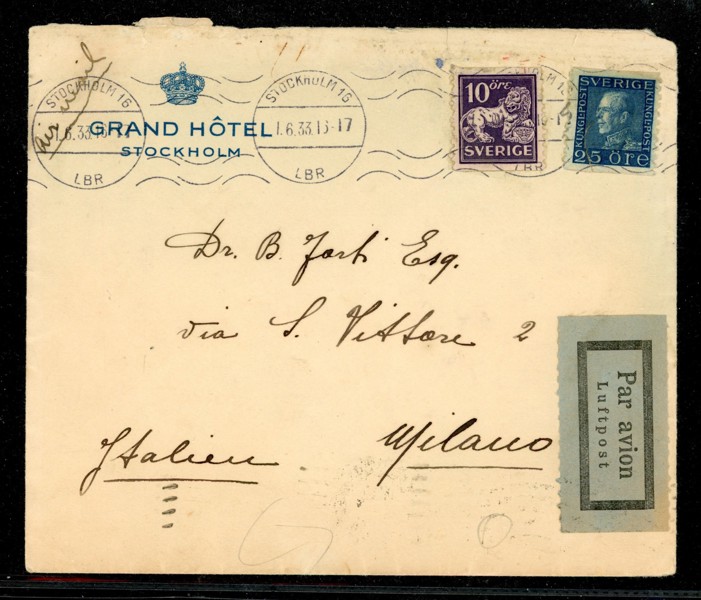 air mail
STOCKHOLM 16
1.6.33.16-17
LBR
GRAND HÔTEL
STOCKHOLM
STOCKHOLM 16
1.6.33.16-17
LBR
10 öre
SVERIGE
LBR
SVERIGE
KUNGEPOST
KUNGEPOST
25 öre
Dr. B. Forti Esq.
via S. Vittore 2
Milano
Italien
Par avion
Luftpost